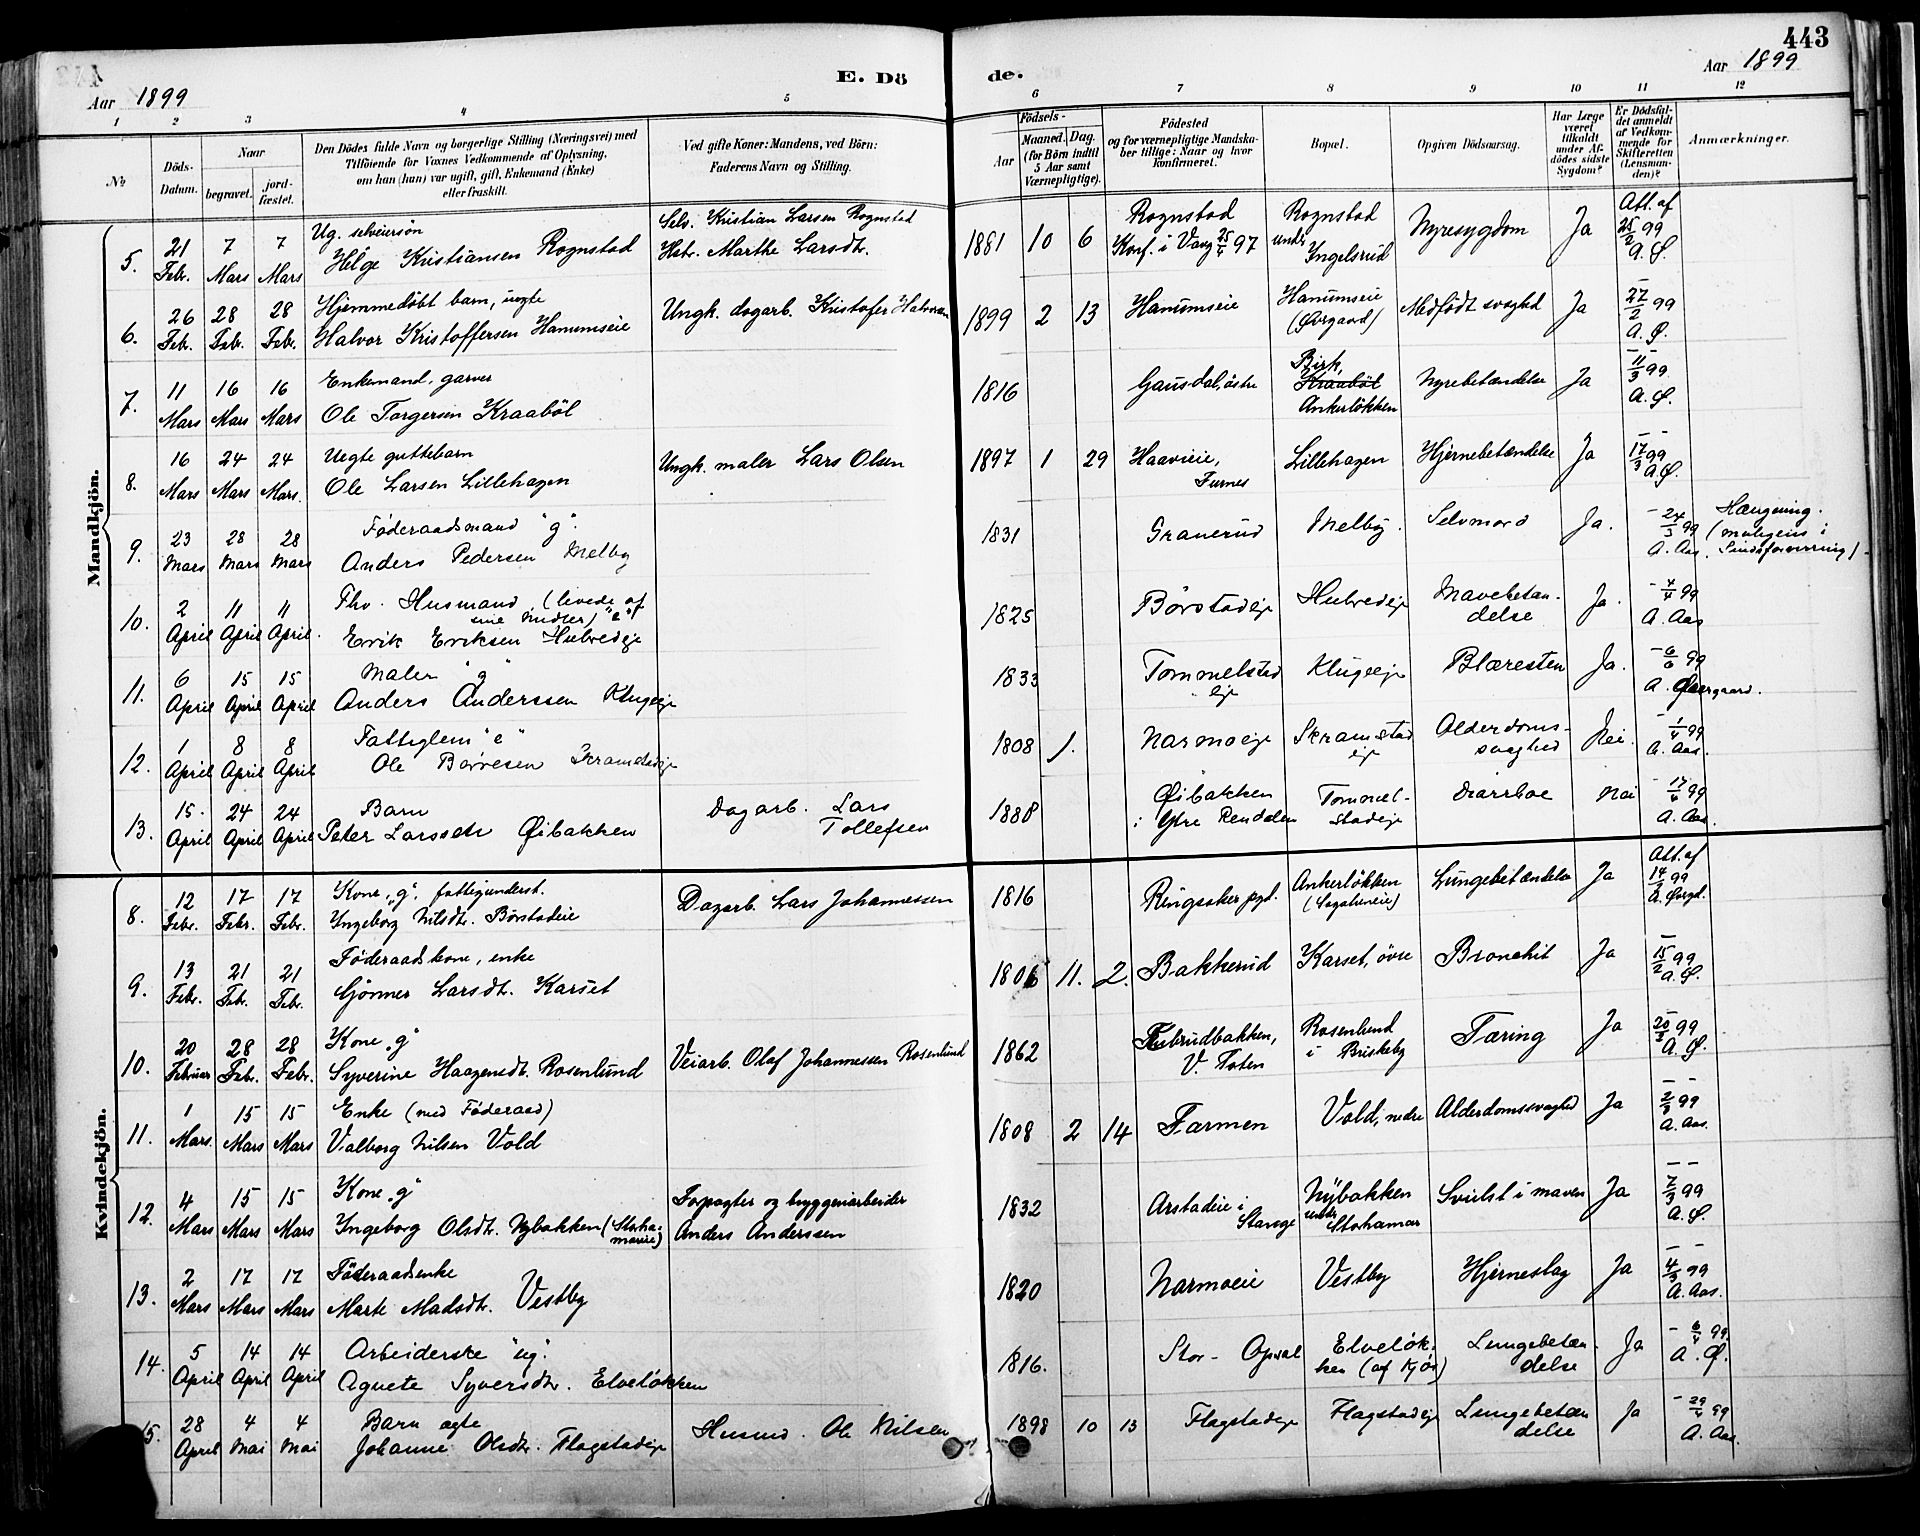 443
E. Dö de.
Aar 1899
Aar 1899
1 2 3 4 5 6 7 8 9 10 11 12
№
Döds-Datum.
Naar
begravet.
jord-fæstet.
Den Dödes fulde Navn og borgerlige Stilling (Næringsvei) med
Tilföiende for Voxnes Vedkommende af Oplysning,
om han (hun) var ugift, gift, Enkemand (Enke)
eller fraskilt.
Ved gifte Koner: Mandens, ved Börn:
Faderens Navn og Stilling.
Födsels-
Aar
Maaned. Dag.
(for Börn indtil
5 Aar samt
Værnepligtige).
Födested
og for værnepligtige Mandska-
ber tillige: Naar og hvor
konfirmeret.
Bopæl.
Opgiven Dödsaarsag.
Har Læge
været
tilkaldt
under Af-
dödes sidste
Sygdom?
Er Dödsfal-
det anmeldt
af Vedkom-
mende for
Skifteretten
(Lensman-
den)?
Anmærkninger.
Mandkjön.
5. 21 Febr. 7 Mars 7 Mars Ug. selveiersön Helge Kristiansen Rognstad Selv. Kristian Larsen Rognstad Hstr. Marthe Larsdt. 1881 10 6 Rognstad Konf. i Vang 25/4 97 Rognstad under Ingelsrud Nyresygdom Ja Att. af 25/2 99 A. Ø.
6. 26 Febr. 28 Febr. 28 Febr. Hjemmedöbt barn, uegte Halvor Kristoffersen Hanumseie Ungk. dagarb. Kristofer Halvorsen 1899 2 13 Hanumseie Hanumseie (Øvrgaard) Medfödt svaghed Ja 27/2 99 A. Ø.
7. 11 Mars 16 Mars 16 Mars Enkemand, garver Ole Torgersen Kraaböl 1816 Gausdal, östre Birk, Kraaböl Ankerlökken Nyrebetændelse Ja - 11/3 99 - A. Ø.
8. 16 Mars 24 Mars 24 Mars. Uegte guttebarn Ole Larsen Lillehagen Ungk. maler Lars Olsen 1897 1 29 Haavieie, Furnes Lillehagen Hjernebetændelse Ja - - 17/3 99 A. Ø.
9. 23 Mars 28 Mars 28 Mars Føderaadsmand "g". Anders Pedersen Melby 1831 Granerud Melby. Selvmord Ja. - 24/3 99 A. Aas. Hængning. (muligens i Sindsforvirring).
10. 2 April 11 April 11 April. Fhv. Husmand (levede af sine Midler) "e" Erik Eriksen Hubredeje 1825 Börstadeje Hubredeje Mavebetændelse Ja. - 4/4 99 A. Aas
11. 6 April 15 April 15 April Maler "g" Anders Anderssen Klugeeje 1833 Tommelstad eje Klugeeje Blæresten Ja. 99 A. Øvergaard.
12. 1 April 8 April 8 April Fattiglem "e" Ole Børresen Skramstadeje 1808 1. Narmoeje Skramstad eje Alderdomssvaghed Nei. - 1/4 99 A. Aas.
13. 15. April 24 April 24 April Barn Peter Larssen Øibakken Dagarb. Lars Tollefsen 1888 Øibakken i Ytre Rendalen Tommelstadeje Diarrhoe Nei 99 A. Aas.
Kvindekjön.
8. 12 Febr. 17 Febr. 17 Febr. Kone „g". fattigunderst. Ingeborg Nilsdt. Börstadeie Dagarb. Lars Johannessen 1816 Ringsaker pgd. Ankerlökken Lungebetændelse Ja Att. af 14/2 99 A. Øvrgd.
9. 13 Febr. 21 Feb. 21 Febr. Føderaadskone, enke Gjönner Larsdt. Karset 1806 11. 2. Bakkerud Karset, övre Bronchit Ja - 15/2 99 A. Ø.
10. 20 Februar 28 Febr. 28 Febr. Kone „g" Syverine Haagensdt. Rosenlund Veiarb. Olaf Johannessen Rosenlund 1862 V. Toten Rosenlund i Briskeby Tæring Ja - 20/2 99 A. Ø.
11. 1 Mars. 15 Mars 15 Mars Enke (med Föderaad) Valborg Nilsen Vold 1808 2 14 Farmen Vold, nedre Alderdomssvaghed Ja - - 2/3 99 A. Aas.
12. 4 Mars 15 Mars 15 Mars Kone „g" Ingeborg Olsdt. Nybakken (Storhamareie) Forpagter og bryggeriarbeider Anders Anderssen 1832 Arstadeie i Stange Nybakken under Storhamar Svulst i maven Ja - - 7/3 99 A. Ø.
13. 2 Mars 17 Mars 17 Mars Föderaadsenke Marte Madsdt. Vestby 1820 Narmoeie Vestby Hjerneslag Ja - - 4/3 99 A. Aas.
14. 5 April 14 April 14 April Arbeiderske "ug". Agnete Syversdtr. Elveløkken 1816. Stor-Opsal Elveløkken (af Kjøs) Lungebetændelse Ja - 6/4 99 A. Ø.
15. 28 April 4 Mai 4 Mai Barn ægte Johanne Olsdtr. Flagstadeje Husmd. Ole Nilsen 1898 10 13 Flagstadeje Flagstadeje Lungebetændelse Ja - 29/4 99 A. Aas.